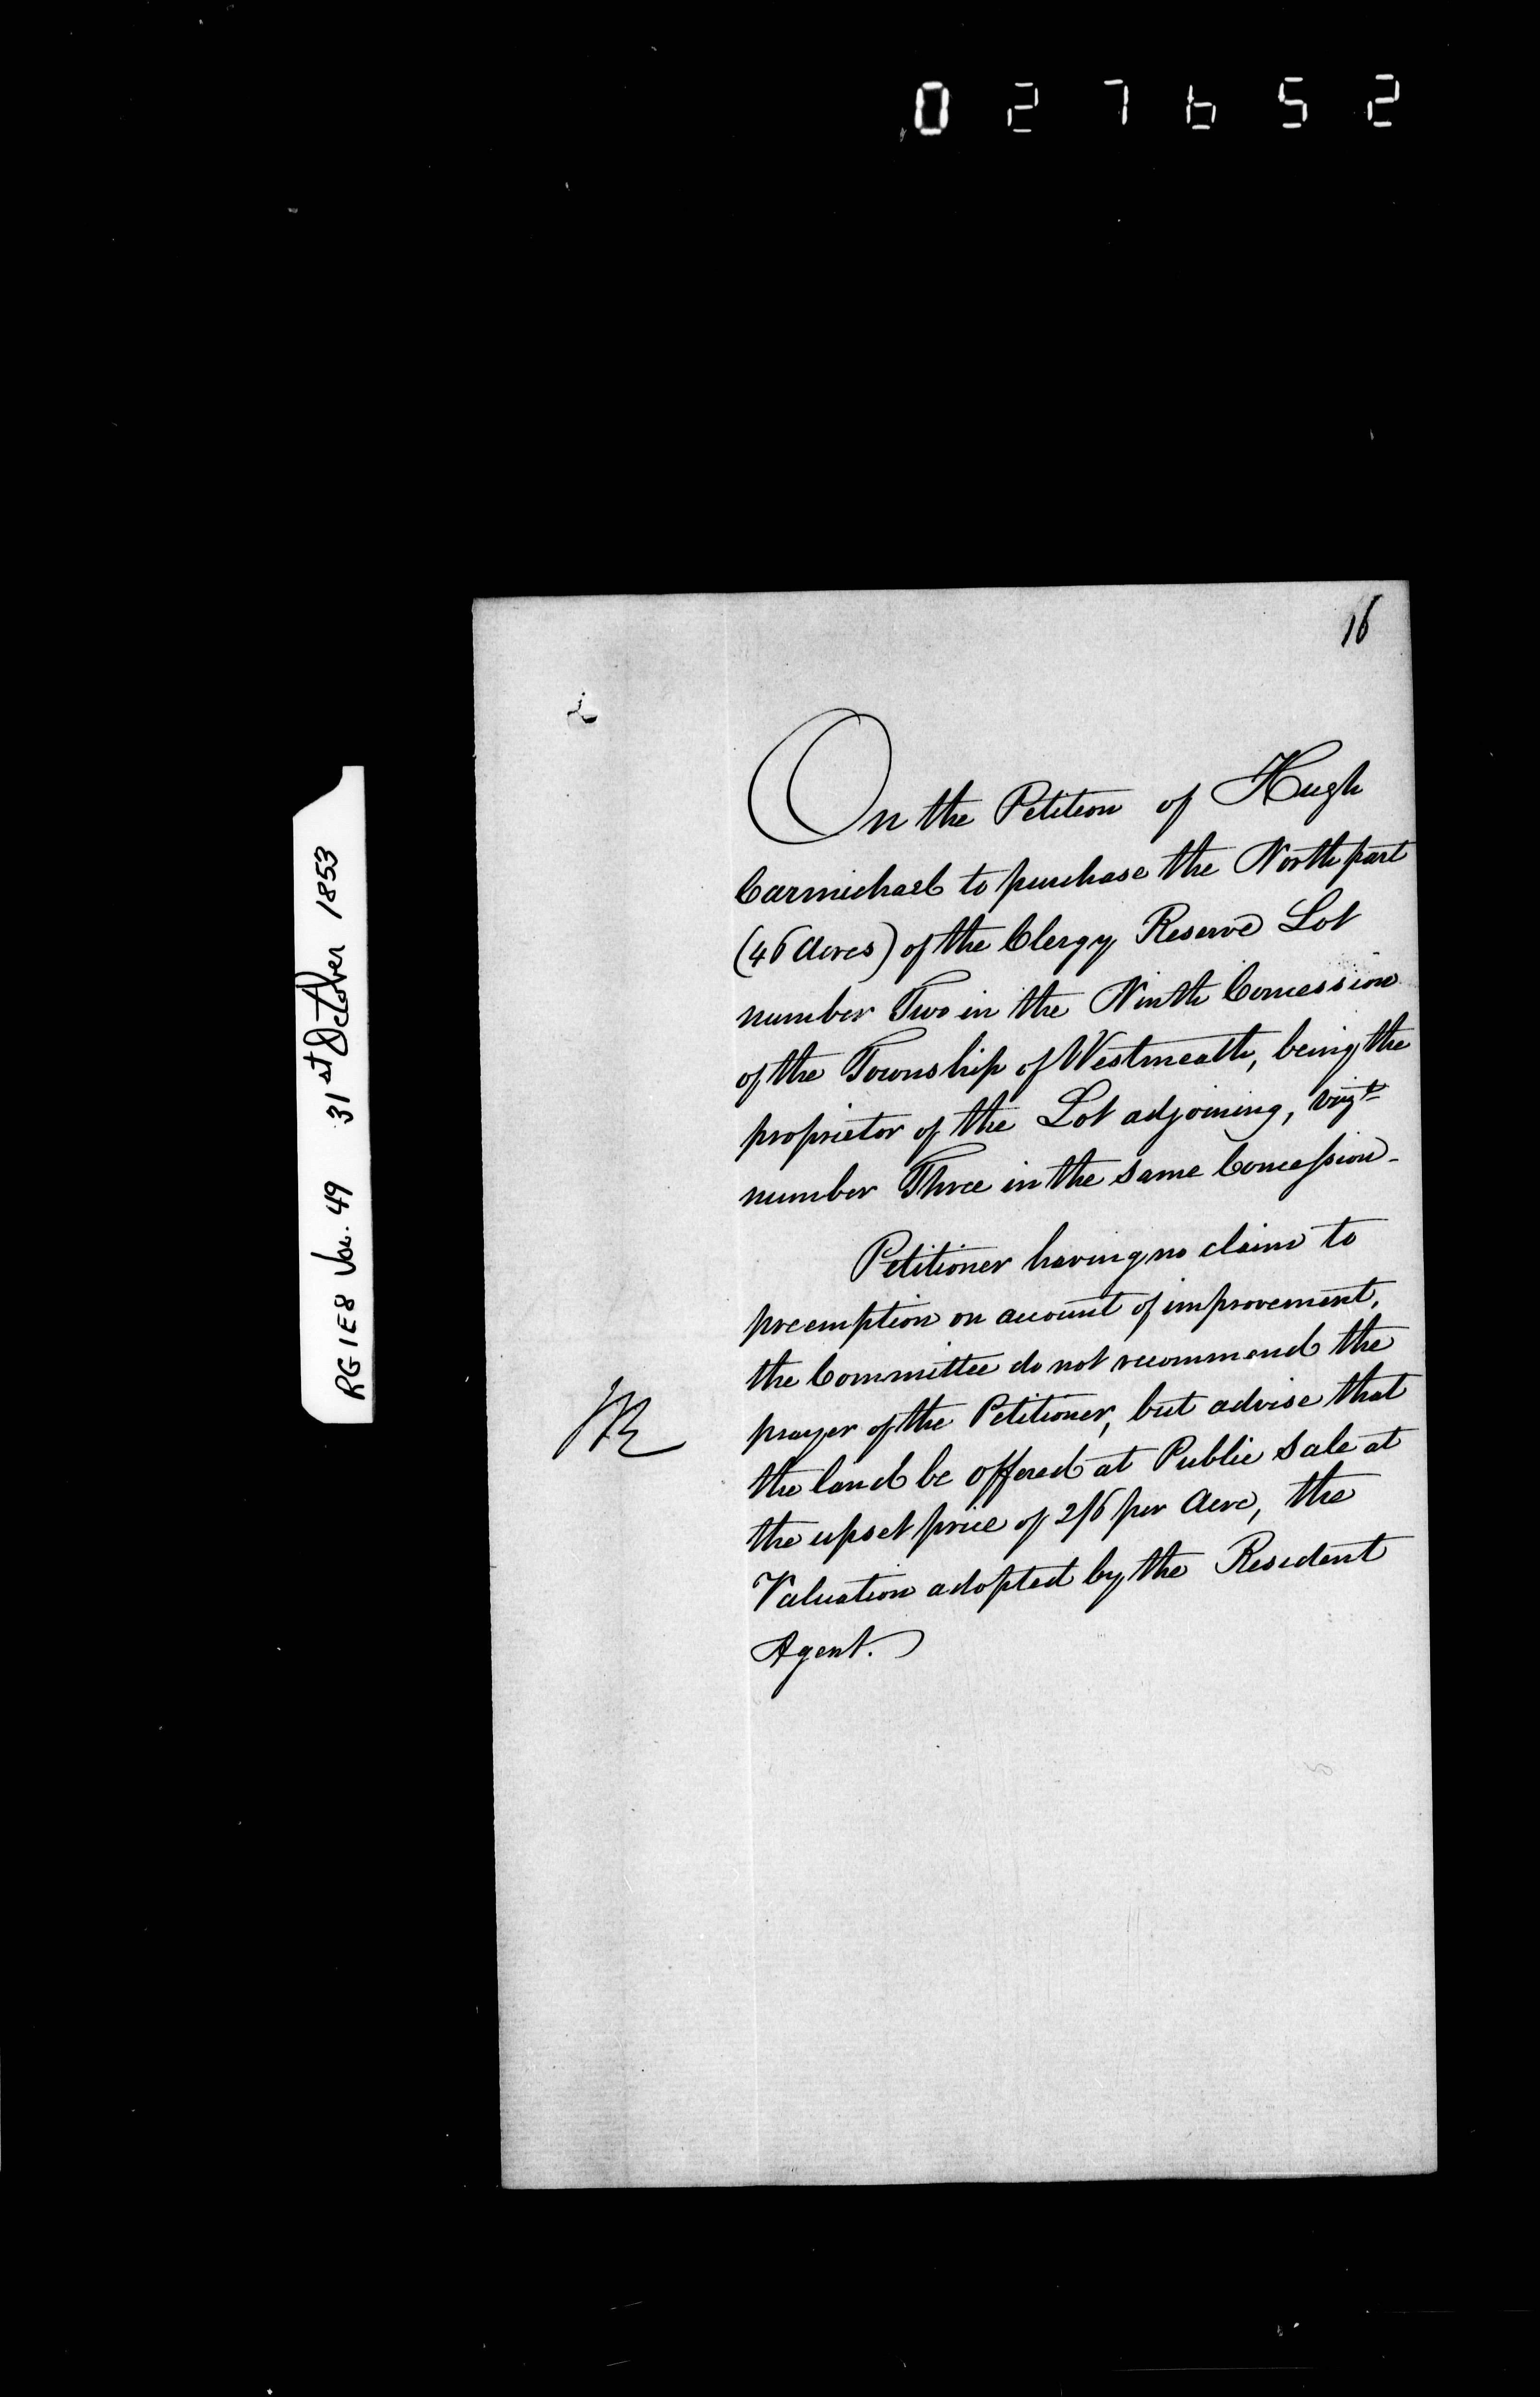 027652
16
RG 1 E8 Vol. 49 31st October 1853
On the Petition of Hugh
Carmichael to purchase the North part
(46 Acres) of the Clergy Reserve Lot
number Two in the Ninth Concession
of the Township of Westmeath, being the
proprietor of the Lot adjoining, vizt
number Three in the same Concession -
Petitioner having no claim to
preemption on account of improvement,
the Committee do not recommend the
prayer of the Petitioner, but advise that
the land be offered at Public Sale at
the upset price of 2/6 per Acre, the
Valuation adopted by the Resident
Agent.